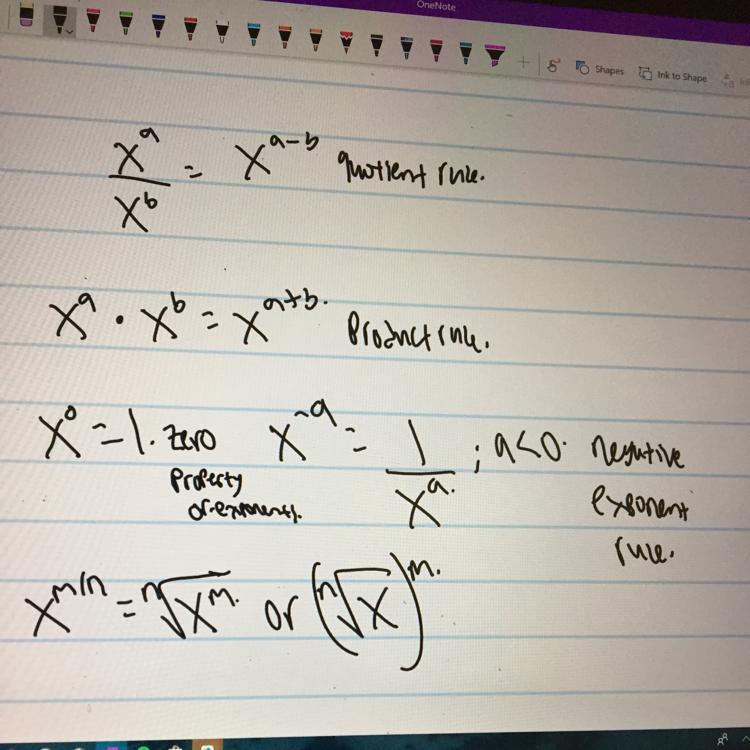 OneNote
Shapes
Ink to Shape
x^a / x^b = x^(a-b) quotient rule.
x^a · x^b = x^(a+b). Product rule.
x^0 = 1. zero x^-a = 1 / x^a. ; a<0. negative
Property exponent
of exponents. rule.
x^(m/n) = ⁿ√x^m. or (ⁿ√x)^m.